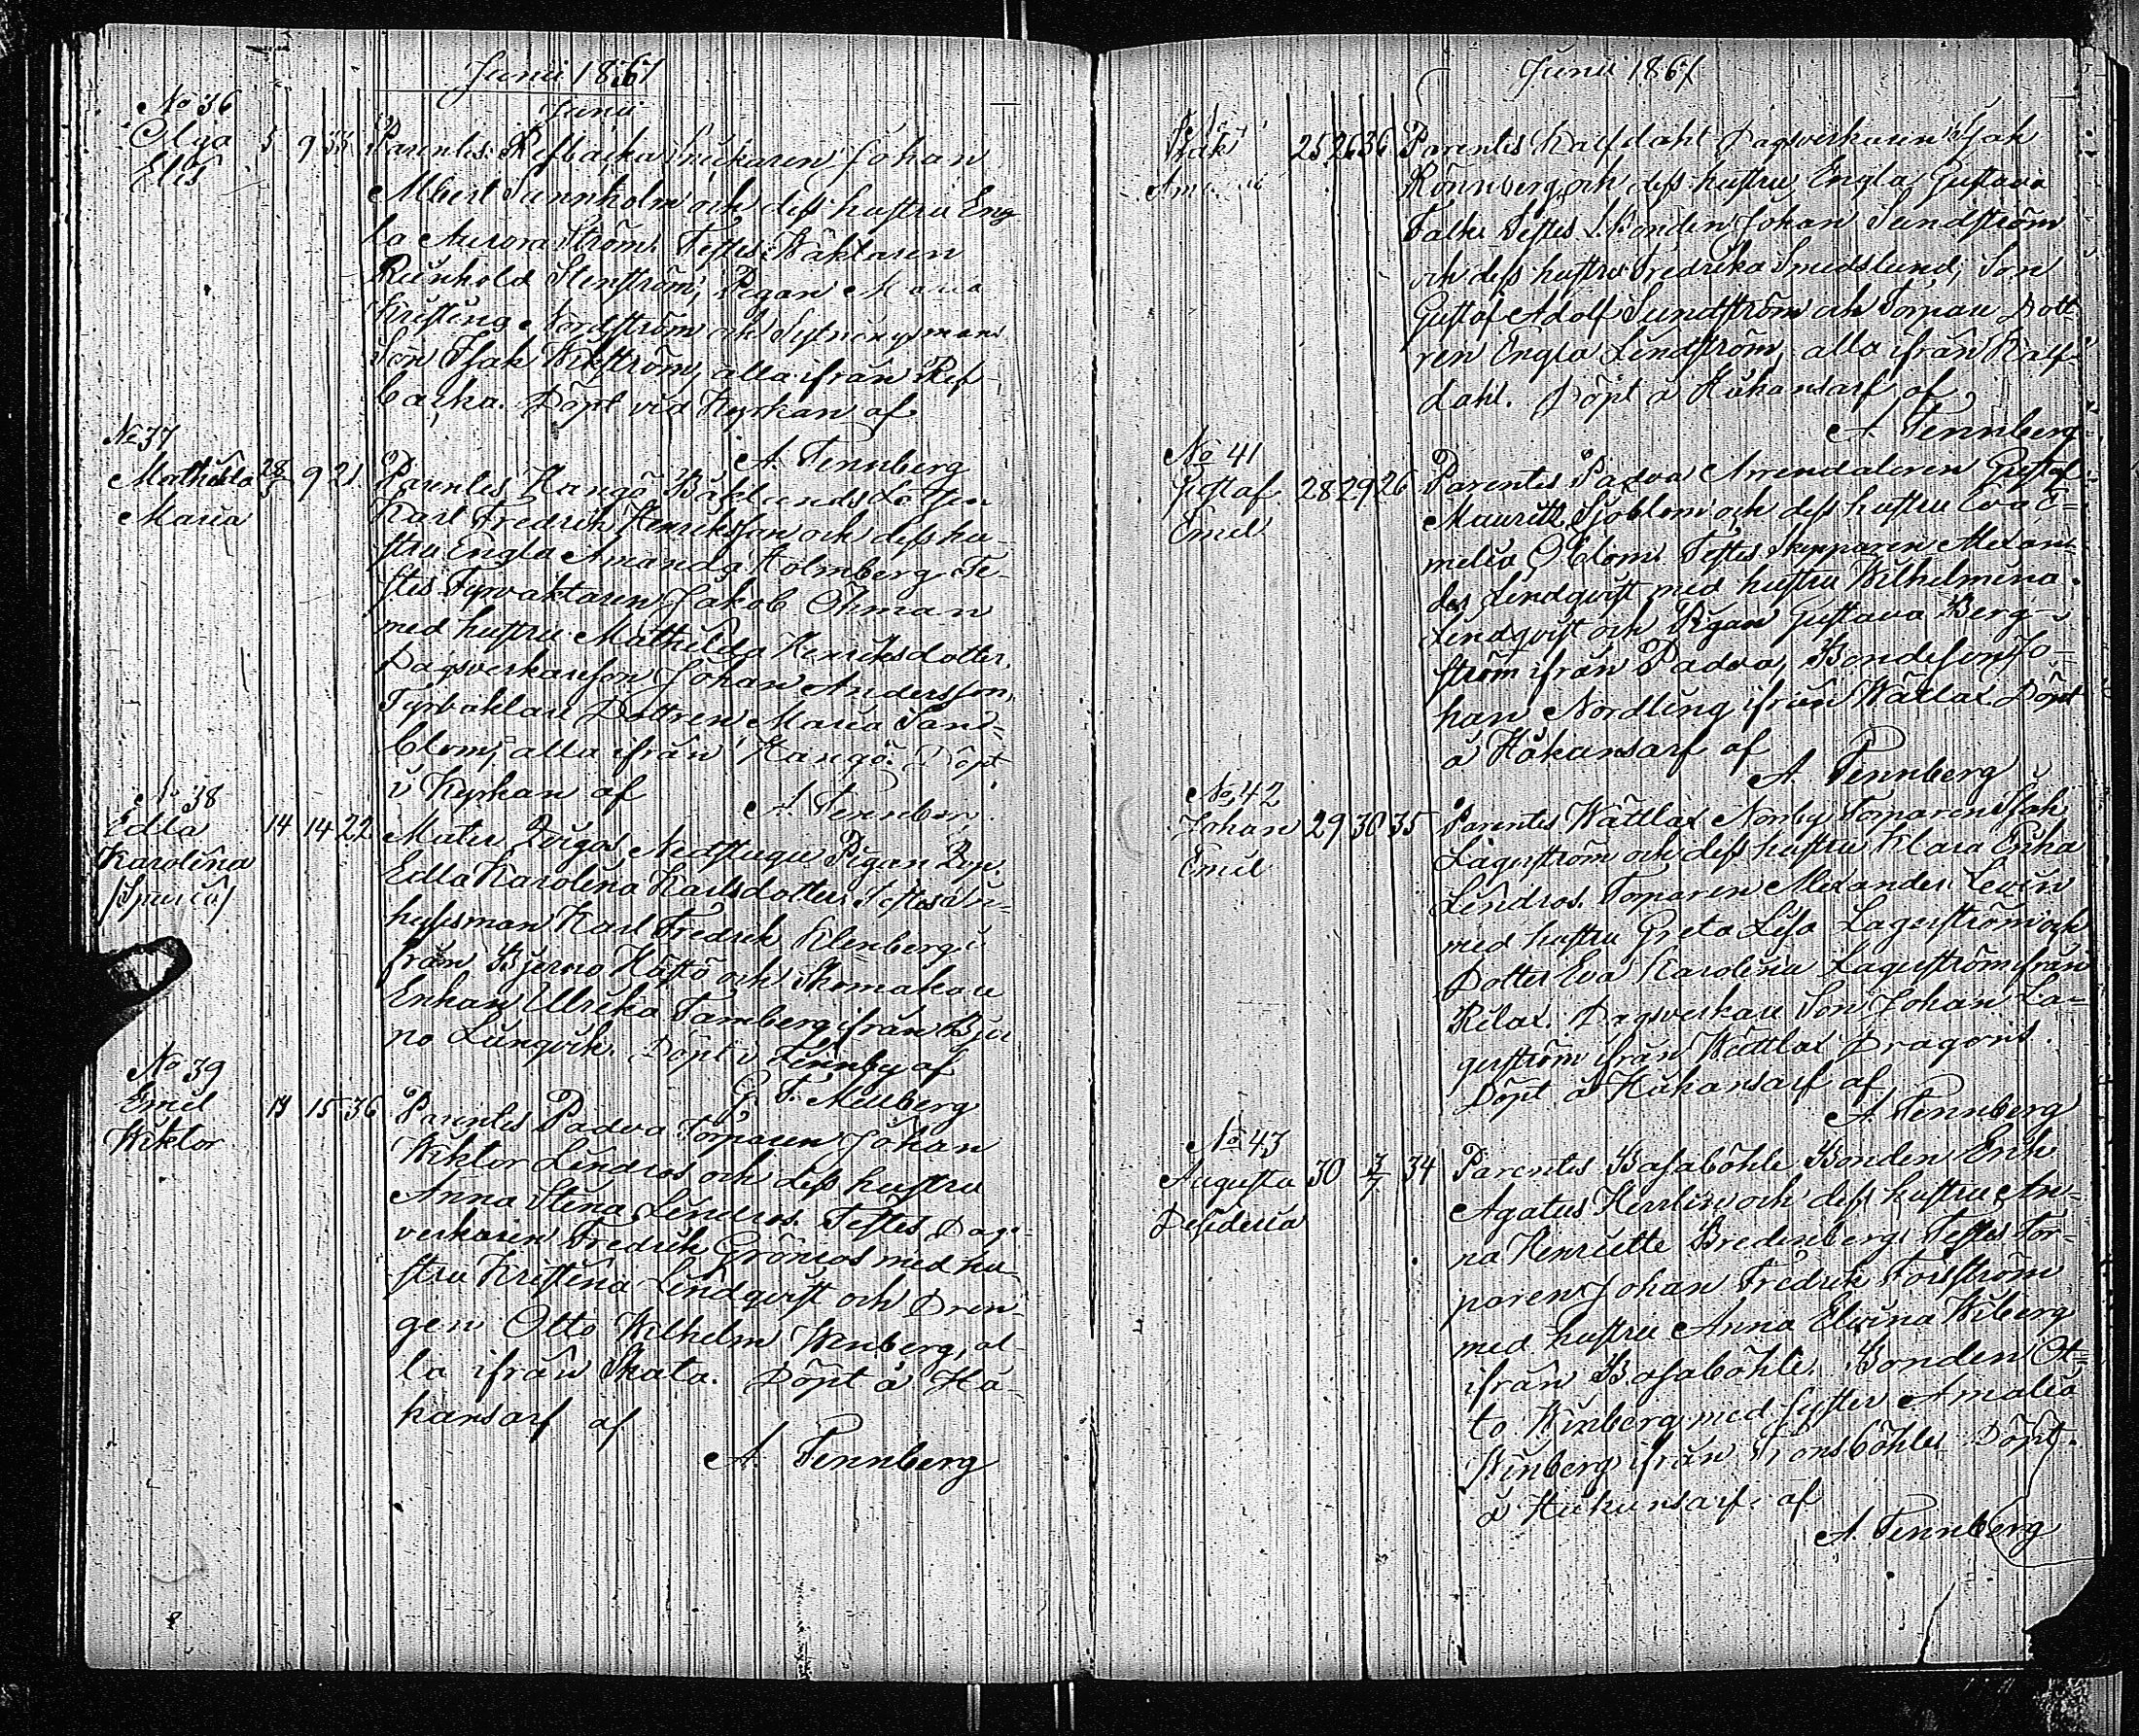 Junii 1867
Junii
No 36
Olga 5 9 33 Parentes Refbacka Snickaren Johan
Elis
Albert Sunnholm och dess hustru Eng-
la Aurora Ström. Testes: Wäktaren
Reinhold Stenström, Pigan Maria
Kristina Nordström och
Son Isak Wikström, alla ifrån Ref-
backa. Döpt vid Kyrkan af
A. Tennberg
No 37
Mathilda 28/5 9 21 Parentes Hangö
Maria
Karl Fredrik Henriksson och dess hu-
stru Engla Amanda Holmberg. Te-
stes Fyrvaktaren Jakob Öhman
med hustru Mathilda Henriksdotter,
Dagsverkareson Johan Andersson,
Fyrvaktare Dottren Maria Sand-
blom, alla ifrån Hangö. Döpt
i Kyrkan af
A. Tennberg
No 38
Edla 14 14 22 Mater Nedstugu Pigan
Karolina
/Spuria/
Edla Karolina Karlsdotter. Testes: In-
hysesman Karl Fredrik Klenberg i-
från Bjerno och Skomakare
Enkan Ulrika Tamberg ifrån Bjer
no Lungvik. Döpt i Finnby af
G. F. Malberg
No 39
Emil 14 15 36 Parentes Padva Torparen Johan
Wiktor
Wiktor Lindros och dess hustru
Anna Stina Lindros. Testes Dags-
verkaren Fredrik Grönros med hu-
stru Kristina Lindqvist och Dren-
gen Otto Wilhelm Wenberg, al-
la ifrån Skata. Döpt å Hå-
kansarf af
A. Tennberg
Junii 1867
Isak 25 26 36 Parentes Kalfdahl Dagsverkaren Isak
Rönnberg och dess hustru Engla Gustava
Falk. Testes Bonden Johan Sundström
och dess hustru Fredrika Smedslund, Son
Gustaf Adolf Sundström och Torpare Dott-
ren Engla Lindström, alla ifrån Kalf-
dahl. Döpt å Håkansarf af
A. Tennberg
No 41
Gustaf 28 29 26 Parentes Padva Arrendatoren Gustaf
Emil
Mauritz Sjöblom och dess hustru Eva E-
melia Öblom. Testes Skepparen Alexan-
der Lindqvist med hustru Wilhelmina
Lindqvist och Pigan Gustava Berg-
ström ifrån Padva, Bondeson Jo-
han Nordling ifrån Wättlax. Döpt
å Håkansarf af
A. Tennberg
No 42
Johan 29 30 35 Parentes Wättlax Norrby Torparen Isak
Emil
Lagerström och dess hustru Klara Erika
Lindros. Torparen Alexander Levin
med hustru Greta Lisa Lagerström och
Dotter Eva Karolina Lagerström ifrån
Rilax. Dagsverkare Son Johan La-
gerström ifrån Wättlax Dragons.
Döpt å Håkansarf af
A. Tennberg
No 43
Augusta 30 3/7 34 Parentes Basaböhle Bonden Erik
Desideria
Agatus Herrlin och dess hustru An-
na Henriette Bredenberg. Testes Tor-
paren Johan Fredrik Forsström
med hustru Anna Elvina Wiberg
ifrån Basaböhle. Bonden Ot-
to Winberg med syster Amalia
Winberg ifrån Tronsböhle. Döpt
å Håkansarf af
A. Tennberg